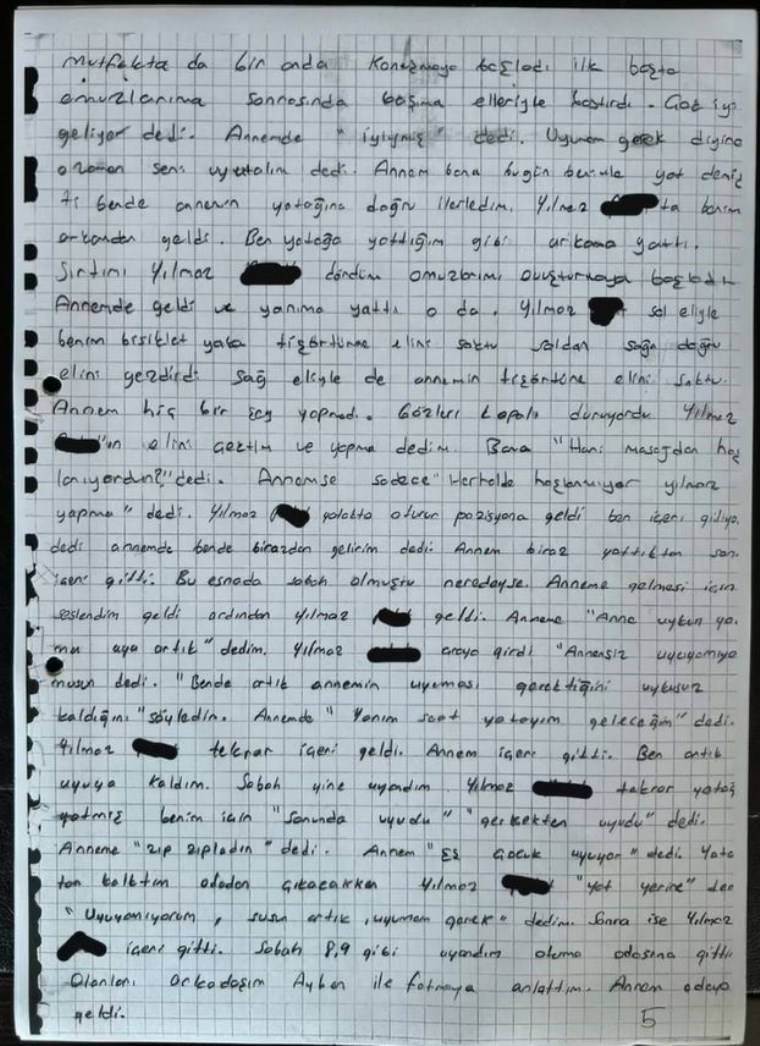 Mutfakta da bir anda konuşmaya başladı ilk başta
omuzlarıma sonrasında başıma elleriyle bastırdı. Çok iyi
geliyor dedi. Annemde "iyiymiş" dedi. Uyumam gerek diyince
o zaman seni uyutalım dedi. Annem bana bugün benimle yat demiş
ti bende annemin yatağına doğru ilerledim. Yılmaz ta benim
arkamdan geldi. Ben yatağa yattığım gibi arkama yattı.
Sırtımı Yılmaz döndüm omuzlarımı ovuşturmaya başladı.
Annemde geldi ve yanıma yattı o da. Yılmaz sol eliyle
benim bisiklet yaka tişörtüme elini soktu soldan sağa doğru
elini gezdirdi sağ eliyle de annemin tişörtüne elini soktu.
Annem hiç bir şey yapmadı. Gözleri kapalı duruyordu Yılmaz
'un elini çektim ve yapma dedim. Bana "Hani masajdan hoş
lanıyordun?" dedi. Annemse sadece "Herhalde hoşlanmıyor yılmaz
yapma" dedi. Yılmaz yatakta oturur pozisyona geldi ben içeri gidiyo.
dedi annemde bende birazdan gelirim dedi. Annem biraz yattıktan son.
içeri gitti. Bu esnada sabah olmuştu neredeyse. Anneme gelmesi için
seslendim geldi ardından Yılmaz geldi. Anneme "Anne uykun yo.
mu uyu artık" dedim. Yılmaz araya girdi "Annensiz uyuyamıyo
musun dedi. "Bende artık annemin uyuması gerektiğini uykusuz
kaldığını" söyledim. Annemde "Yarım saat yatayım geleceğim" dedi.
Yılmaz tekrar içeri geldi. Annem içeri gitti. Ben artık
uyuya kaldım. Sabah yine uyandım Yılmaz tekrar yatağ
yatmış benim için "Sonunda uyudu" "gerçekten uyudu" dedi.
Anneme "zıp zıpladın" dedi. Annem "Eş çocuk uyuyor" dedi. Yata
tan kalktım odadan çıkacakken Yılmaz "yat yerine" den
"Uyuyamıyorum, susun artık, uyumam gerek" dedim. Sonra ise Yılmaz
içeri gitti. Sabah 8,9 gibi uyandım oturma odasına gittim
Olanları arkadaşım Ayben ile fatmaya anlattım. Annem odaya
geldi.
5